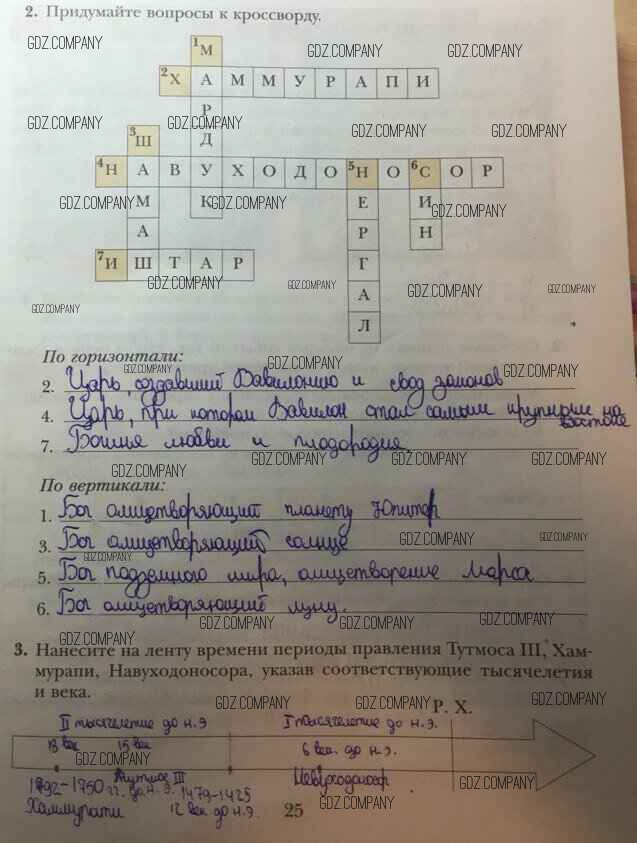 2. Придумайте вопросы к кроссворду.
GDZ.COMPANY GDZ.COMPANY GDZ.COMPANY
1М
2ХАММУРАПИ
Р
GDZ.COMPANY GDZ.COMPANY GDZ.COMPANY
3Ш Д
4НАВУХОДО5НО6СОР
М К Е И
GDZ.COMPANY GDZ.COMPANY GDZ.COMPANY
А Р Н
7ИШТАР Г
GDZ.COMPANY GDZ.COMPANY GDZ.COMPANY
А
GDZ.COMPANY GDZ.COMPANY
Л
По горизонтали:
GDZ.COMPANY GDZ.COMPANY GDZ.COMPANY
2. Царь, создавший Вавилонию и свод законов
4. Царь, при котором Вавилон стал самым крупным на востоке
7. Богиня любви и плодородия
GDZ.COMPANY GDZ.COMPANY GDZ.COMPANY GDZ.COMPANY
По вертикали:
1. Бог олицетворяющий планету Юпитер
GDZ.COMPANY GDZ.COMPANY
3. Бог олицетворяющий солнце
GDZ.COMPANY
5. Бог подземного мира, олицетворение Марса
6. Бог олицетворяющий луну.
GDZ.COMPANY GDZ.COMPANY GDZ.COMPANY GDZ.COMPANY
3. Нанесите на ленту времени периоды правления Тутмоса III, Хам-
мурапи, Навуходоносора, указав соответствующие тысячелетия
и века.
GDZ.COMPANY GDZ.COMPANY GDZ.COMPANY
Р. Х.
II тысячелетие до н.э I тысячелетие до н.э.
18 век 15 век 6 век. до н.э.
GDZ.COMPANY
III
GDZ.COMPANY
1792-1750 гг. до н.э. 1479-1425
GDZ.COMPANY GDZ.COMPANY
Хаммурапи 12 век до н.э. 25